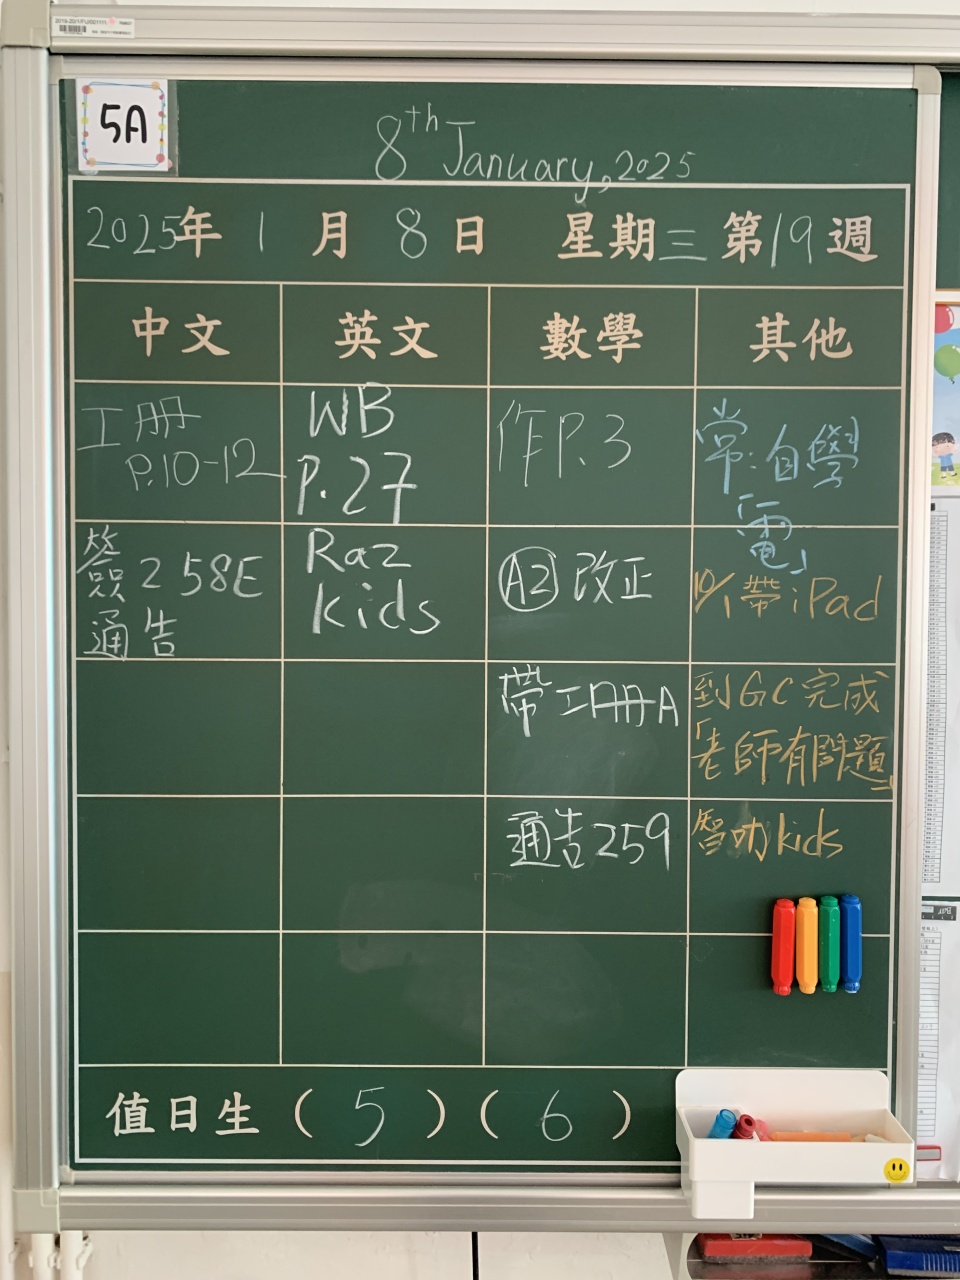 5A
8th January, 2025
2025年 1 月 8 日 星期三 第19週
中文 英文 數學 其他
工冊
P.10-12
WB
P.27
作P.3
常:自學
「電」
簽 258E
通告
Raz
kids
A2 改正
10/1 帶iPad
帶工冊A
到GC完成
「老師有問題」
通告259
智叻kids
值日生 ( 5 ) ( 6 )